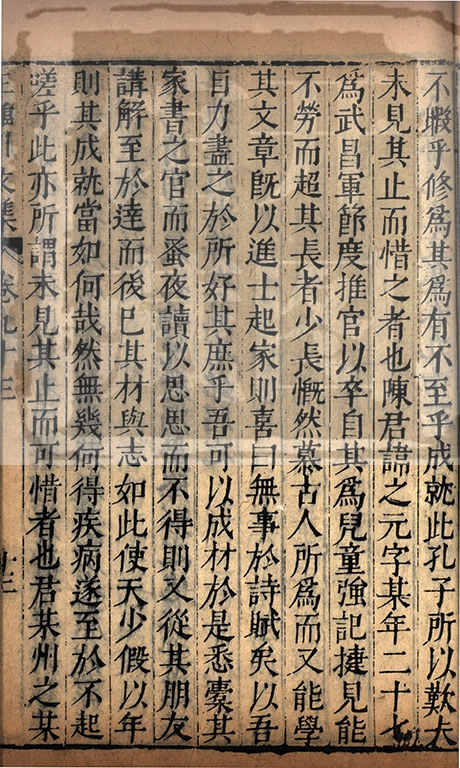 不暇乎修爲其爲有不至乎成就此孔子所以歎夫
未見其止而惜之者也陳君諱之元字某年二十七
爲武昌軍節度推官以卒自其爲兒童強記捷見能
不勞而超其長者少長慨然慕古人所爲而又能學
其文章既以進士起家則喜曰無事於詩賦矣以吾
日力盡之於所好其庶乎吾可以成材於是悉橐其
家書之官而蚤夜讀以思思而不得則又從其朋友
講解至於達而後已其材與志如此使天少假以年
則其成就當如何哉然無幾何得疾病遂至於不起
嗟乎此亦所謂未見其止而可惜者也君某州之某
王臨川文集 卷九十三 十三